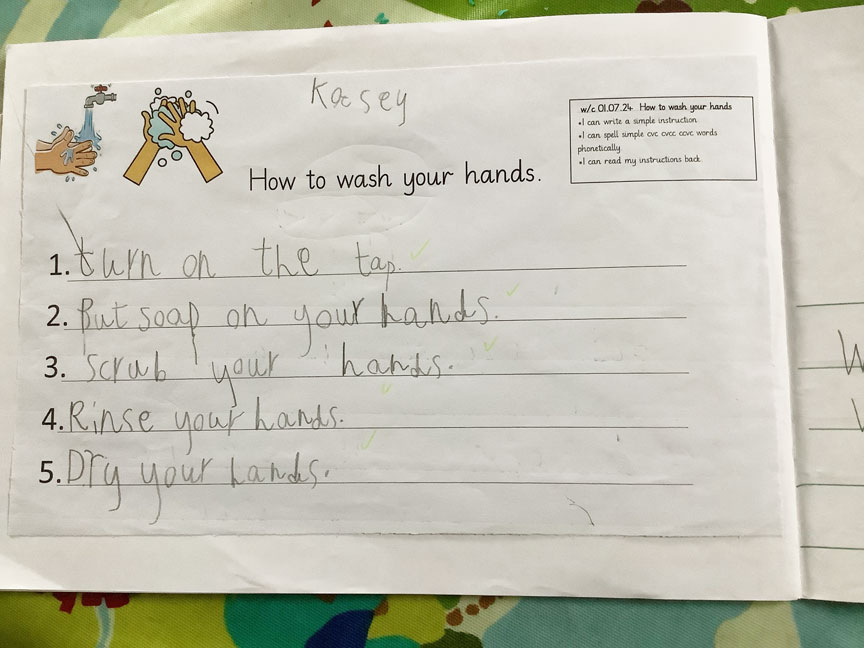 Kacsey
w/c 01.07.24 How to wash your hands
•I can write a simple instruction.
•I can spell simple cvc cvcc ccvc words
phonetically.
•I can read my instructions back.
How to wash your hands.
1. turn on the tap.
2. Put soap on your hands.
3. scrub your hands.
4. Rinse your hands.
5. Dry your hands.